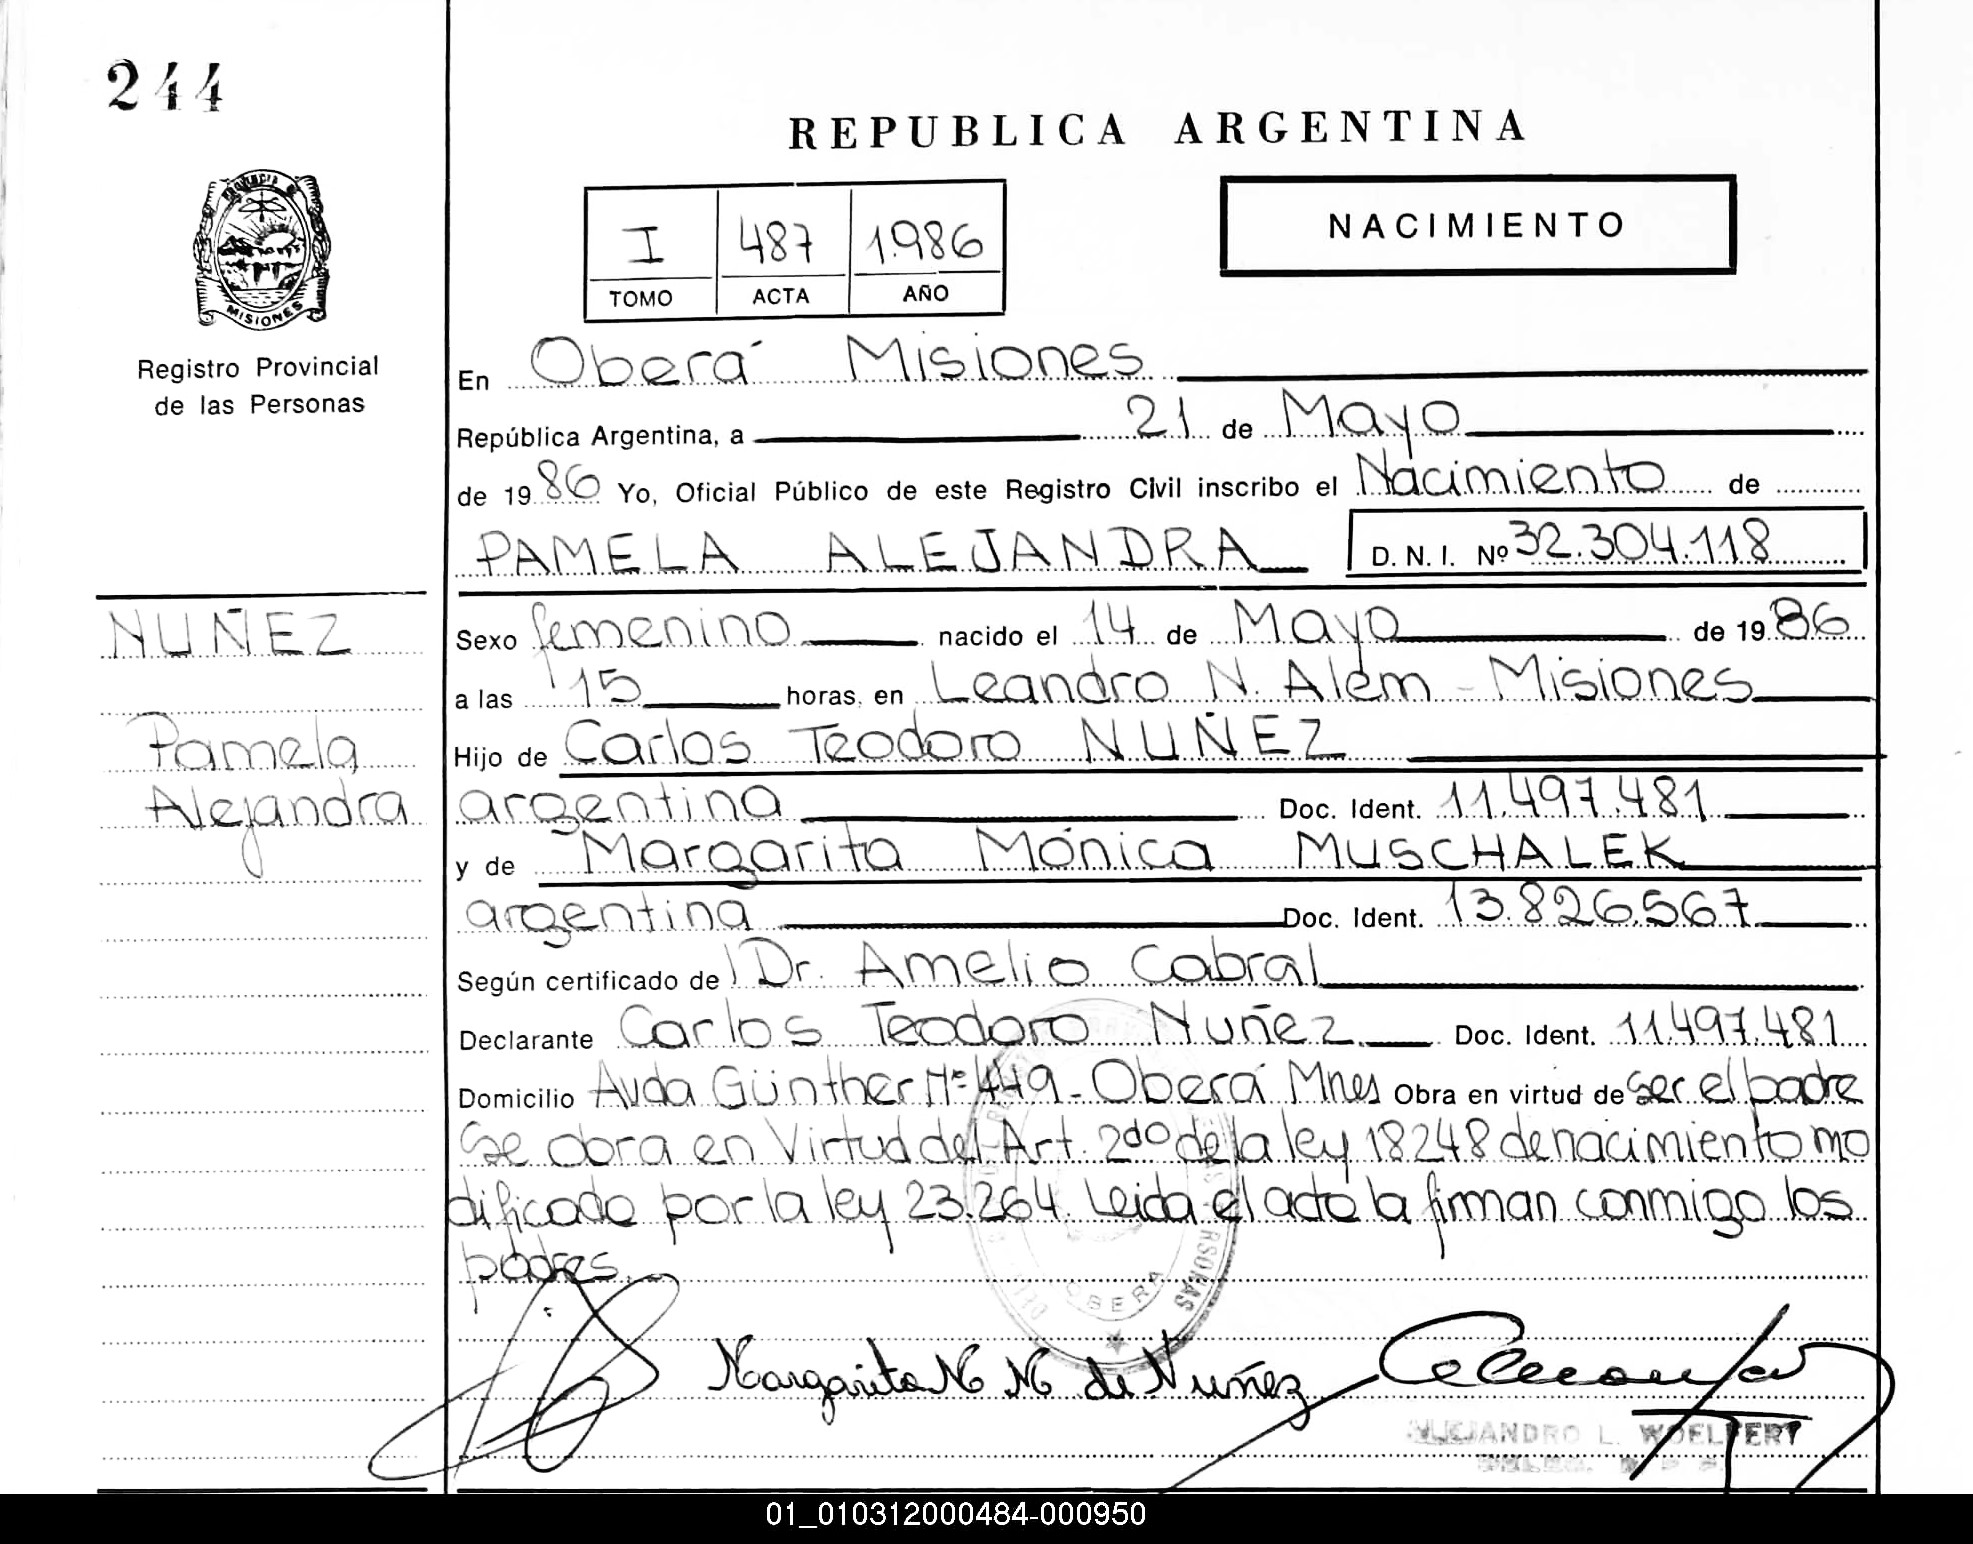 244
REPUBLICA ARGENTINA
NACIMIENTO
I 487 1.986
TOMO ACTA AÑO
MISIONES
Registro Provincial
de las Personas
En Oberá Misiones
República Argentina, a 21 de Mayo
de 19 86 Yo, Oficial Público de este Registro Civil inscribo el Nacimiento de
PAMELA ALEJANDRA D. N. I. Nº 32.304.118
NUÑEZ
Pamela
Alejandra
Sexo femenino nacido el 14 de Mayo de 19 86
a las 15 horas, en Leandro N. Alem - Misiones
Hijo de Carlos Teodoro NUÑEZ
argentina Doc. Ident. 11.497.481
y de Margarita Mónica MUSCHALEK
argentina Doc. Ident. 13.826.567
Según certificado de Dr. Amelio Cabral
Declarante Carlos Teodoro Nuñez Doc. Ident. 11.497.481
Domicilio Avda Günther Nº 449 - Oberá Mnes Obra en virtud de ser el padre
Se obra en Virtud del Art. 2do de la ley 18248 de nacimiento mo
dificado por la ley 23.264. Leida el acta la firman conmigo los
padres.
OBERA
Margarita M M de Nuñez
ALEJANDRO L. WOELFERT
01_010312000484-000950